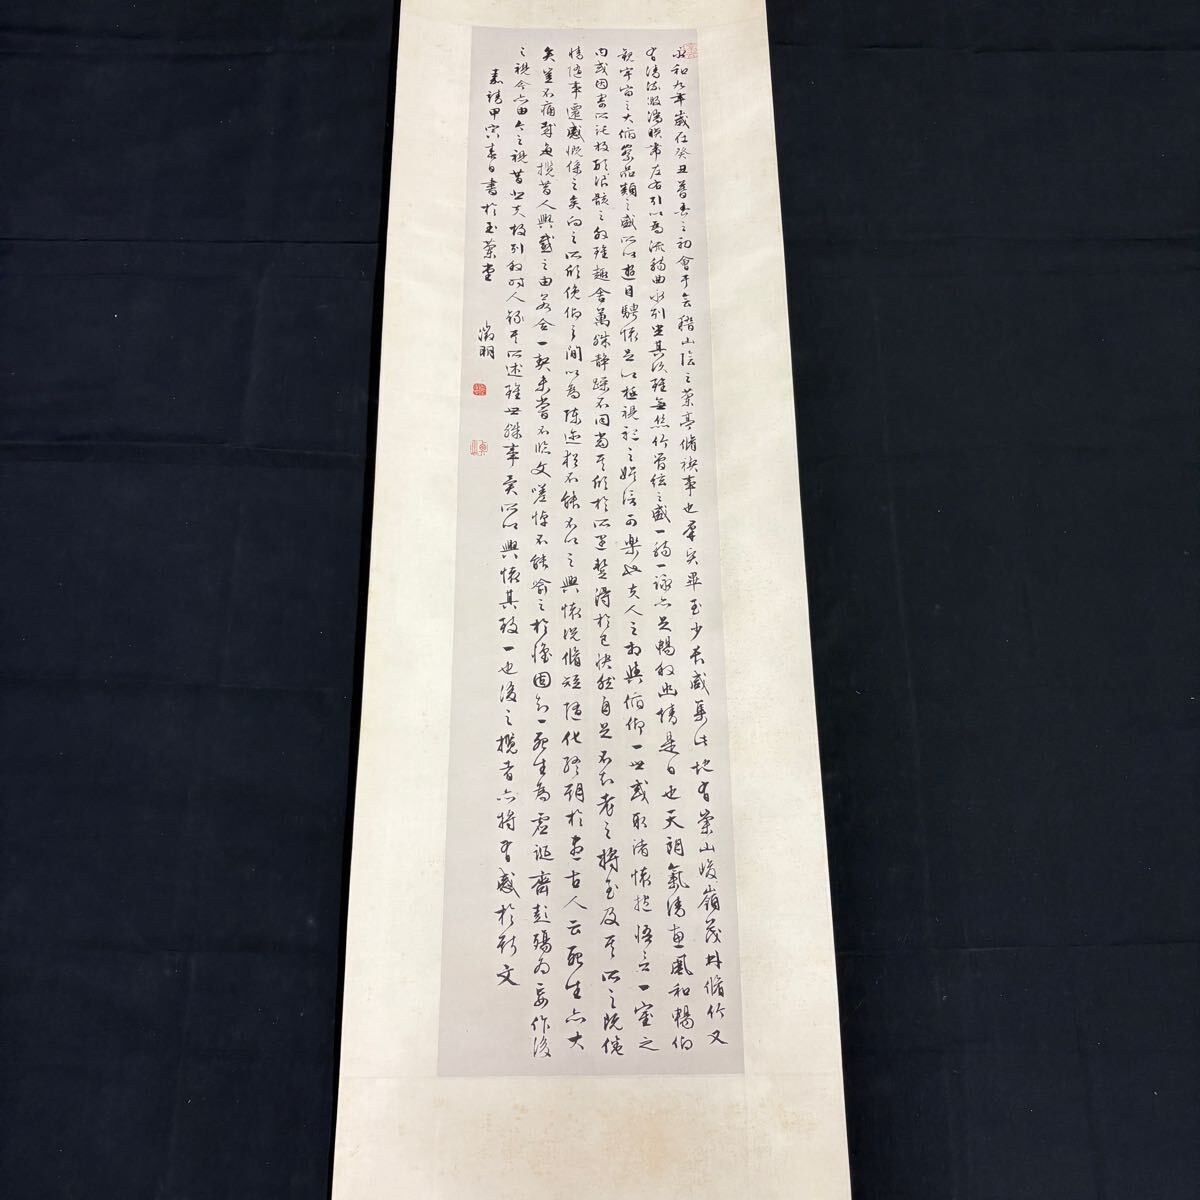 永和九年歲在癸丑暮春之初會于會稽山陰之蘭亭脩禊事也羣賢畢至少長咸集此地有崇山峻嶺茂林脩竹又
有清流激湍映帶左右引以爲流觴曲水列坐其次雖無絲竹管絃之盛一觴一詠亦足暢敘幽情是日也天朗氣清惠風和暢仰
觀宇宙之大俯察品類之盛所以遊目騁懷足以極視聽之娛信可樂也夫人之相與俯仰一世或取諸懷抱悟言一室之
內或因寄所託放形骸之外雖趣舍萬殊靜躁不同當其欣於所遇暫得於己快然自足不知老之將至及其所之既倦
情隨事遷感慨係之矣向之所欣俛仰之間以爲陳迹猶不能不以之興懷況脩短隨化終期於盡古人云死生亦大
矣豈不痛哉每攬昔人興感之由若合一契未嘗不臨文嗟悼不能喻之於懷固知一死生爲虛誕齊彭殤爲妄作後
之視今亦由今之視昔悲夫故列敘時人錄其所述雖世殊事異所以興懷其致一也後之攬者亦將有感於斯文
嘉靖甲寅春日書於玉蘭堂
徵明